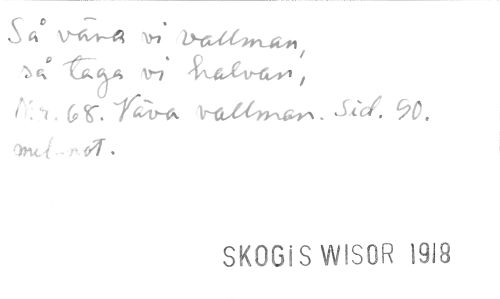 Så väva vi vallman,
så taga vi halvan,
Nr. 68. Väva vallman. Sid. 90.
mel-not.
SKOGIS WISOR 1918